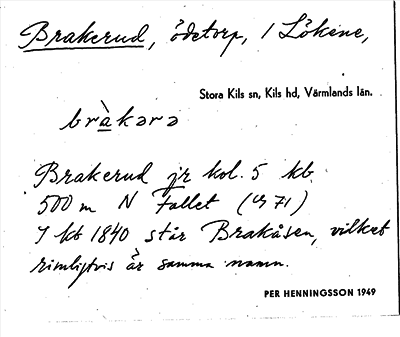 Brakerud, ödetorp, / Lökene,
Stora Kils sn, Kils hd, Värmlands län.
bràkərə
Brakerud jr kol. 5 kb
500 m N Fallet (
I kb 1840 står Brakåsen, vilket
rimligtvis är samma namn.
PER HENNINGSSON 1949